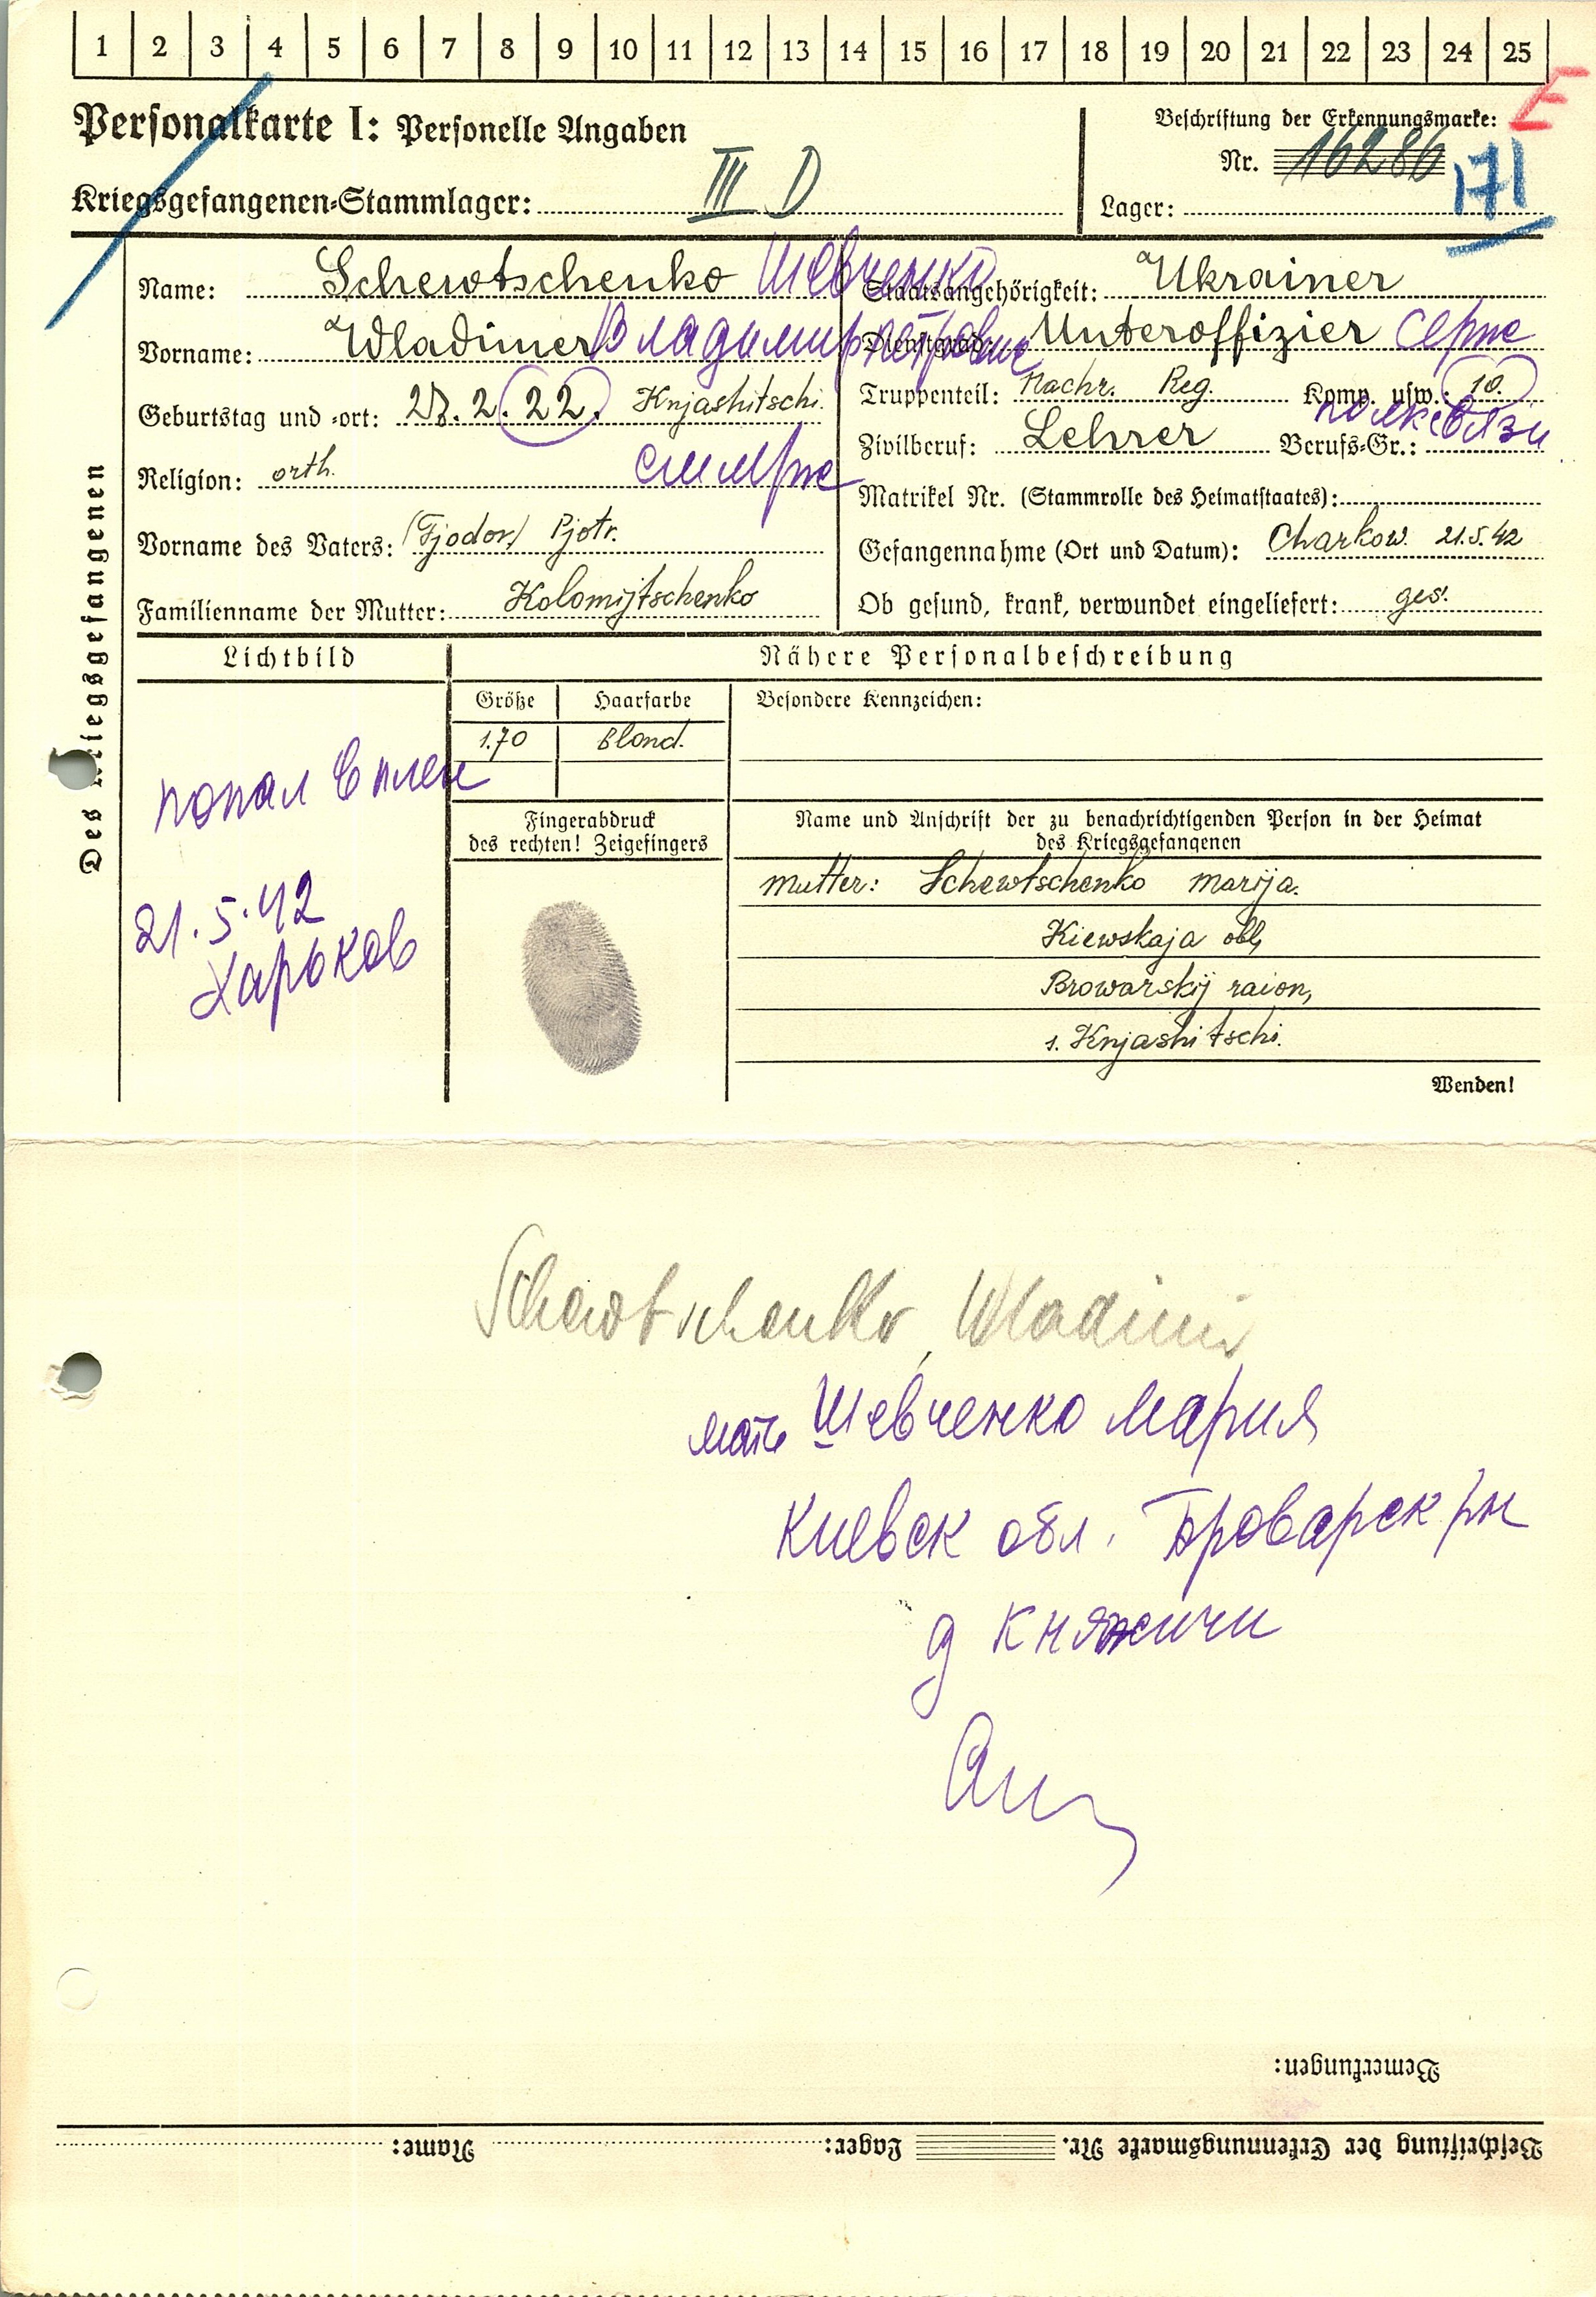 1 2 3 4 5 6 7 8 9 10 11 12 13 14 15 16 17 18 19 20 21 22 23 24 25
Personalkarte I: Personelle Angaben
Beschriftung der Erkennungsmarke: E
III D
Nr. 16286 171
Kriegsgefangenen-Stammlager:
Lager:
Des Kriegsgefangenen
Name: Schewtschenko Шевченко
Vorname: Wladimer Владимир Петрович
Geburtstag und -ort: 28.2.22. Knjashitschi.
Religion: orth.
Vorname des Vaters: (Fjodor) Pjotr.
Familienname der Mutter: Kolomijtschenko
Staatsangehörigkeit: Ukrainer
Dienstgrad: Unteroffizier
Truppenteil: Nachr. Reg. Komp. usw.: 10.
полк связи
Zivilberuf: Lehrer Berufs-Gr.:
Matrikel Nr. (Stammrolle des Heimatstaates):
Gefangennahme (Ort und Datum): Charkow. 21.5.42
Ob gesund, krank, verwundet eingeliefert: ges.
Lichtbild
попал в плен
21.5.42
Харьков
Nähere Personalbeschreibung
Größe Haarfarbe Besondere Kennzeichen:
1.70 Blond.
Fingerabdruck
des rechten! Zeigefingers
Name und Anschrift der zu benachrichtigenden Person in der Heimat
des Kriegsgefangenen
Mutter: Schewtschenko Marija.
Kiewskaja obl,
Browarskij raion,
s. Knjashitschi.
Wenden!
Schewtschenko, Wladimir
мать Шевченко Мария
Киевск обл. Броварск рн
д Княжичи
Bemerkungen:
Beschriftung der Erkennungsmarke Nr. Lager: Name: